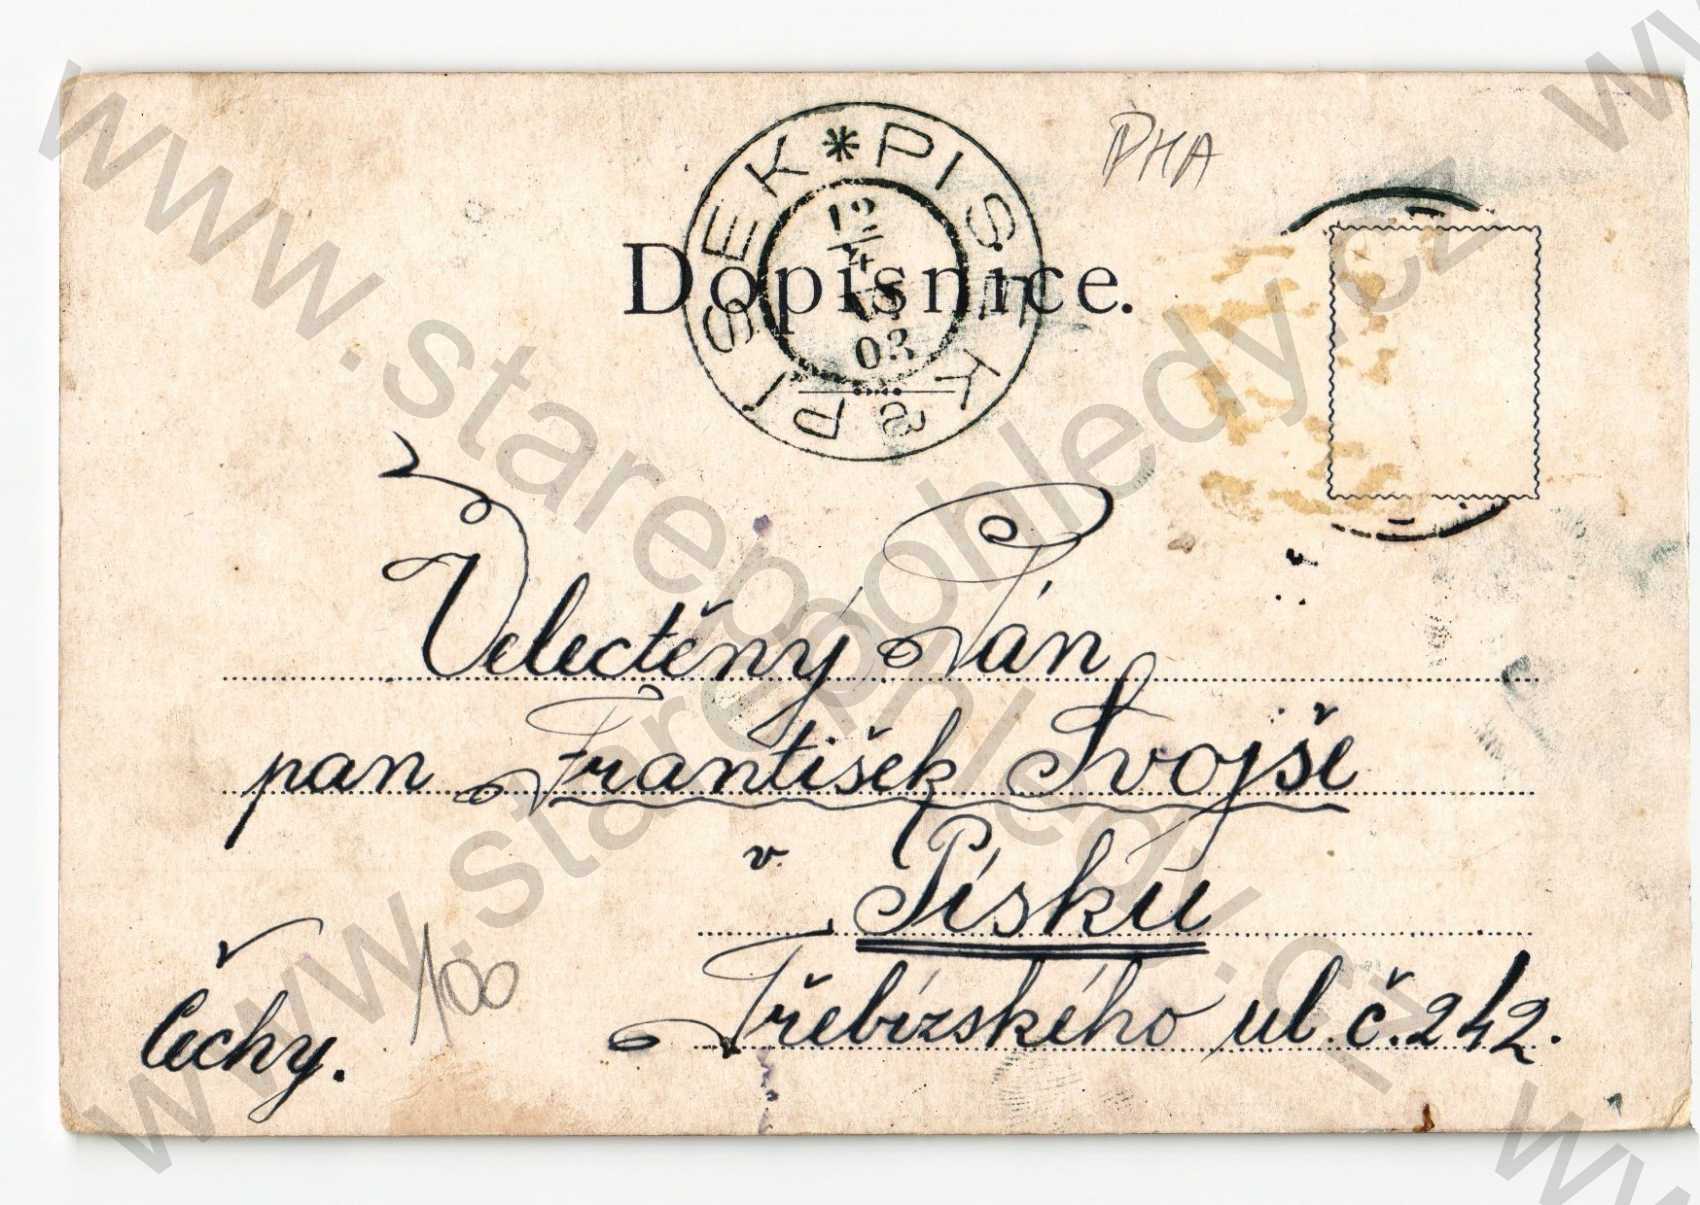 PHA
PISEK * PISEK
12
4
03
PISEK
Dopisnice.
Velectěný Pán
pan František Svojše
v Písku
Třebízského ul. č. 242.
Čechy.
100
www.starepohledy.cz
www.starepohledy.cz